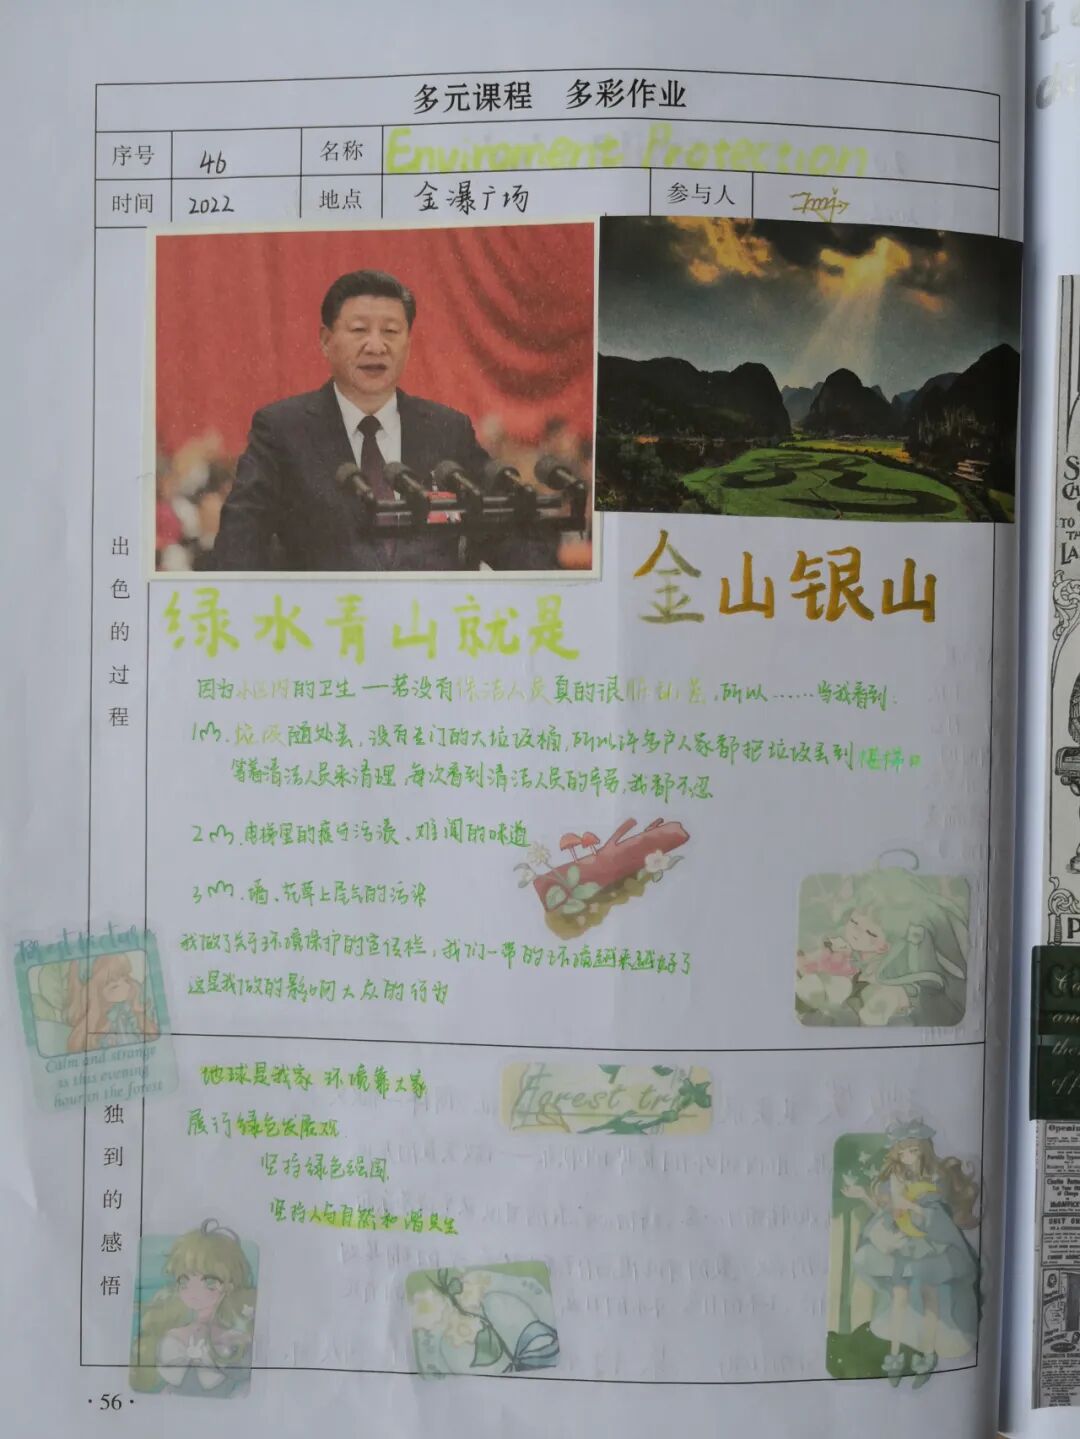 多元课程 多彩作业
序号 46 名称 Enviroment Protection
时间 2022 地点 金瀑广场 参与人
出色的过程
金山银山
绿水青山就是
因为小区内的卫生一若没有保洁人员真的很脏乱差,所以……当我看到:
1、垃圾随处丢,没有专门的大垃圾桶,所以许多户人家都把垃圾丢到楼梯口
等着清洁人员来清理,每次看到清洁人员的辛劳,我都不忍
2、电梯里的疲惫污渍、难闻的味道
3、墙、花草上尾气的污染
我做了关于环境保护的宣传栏,我们一带的环境越来越好了
这是我做的影响大众的行为
Calm and strange
is this evening
hour in the forest
独到的感悟
地球是我家 环境靠大家
履行绿色发展观
坚持绿色强国
坚持人与自然和谐共生
Forest tri
·56·